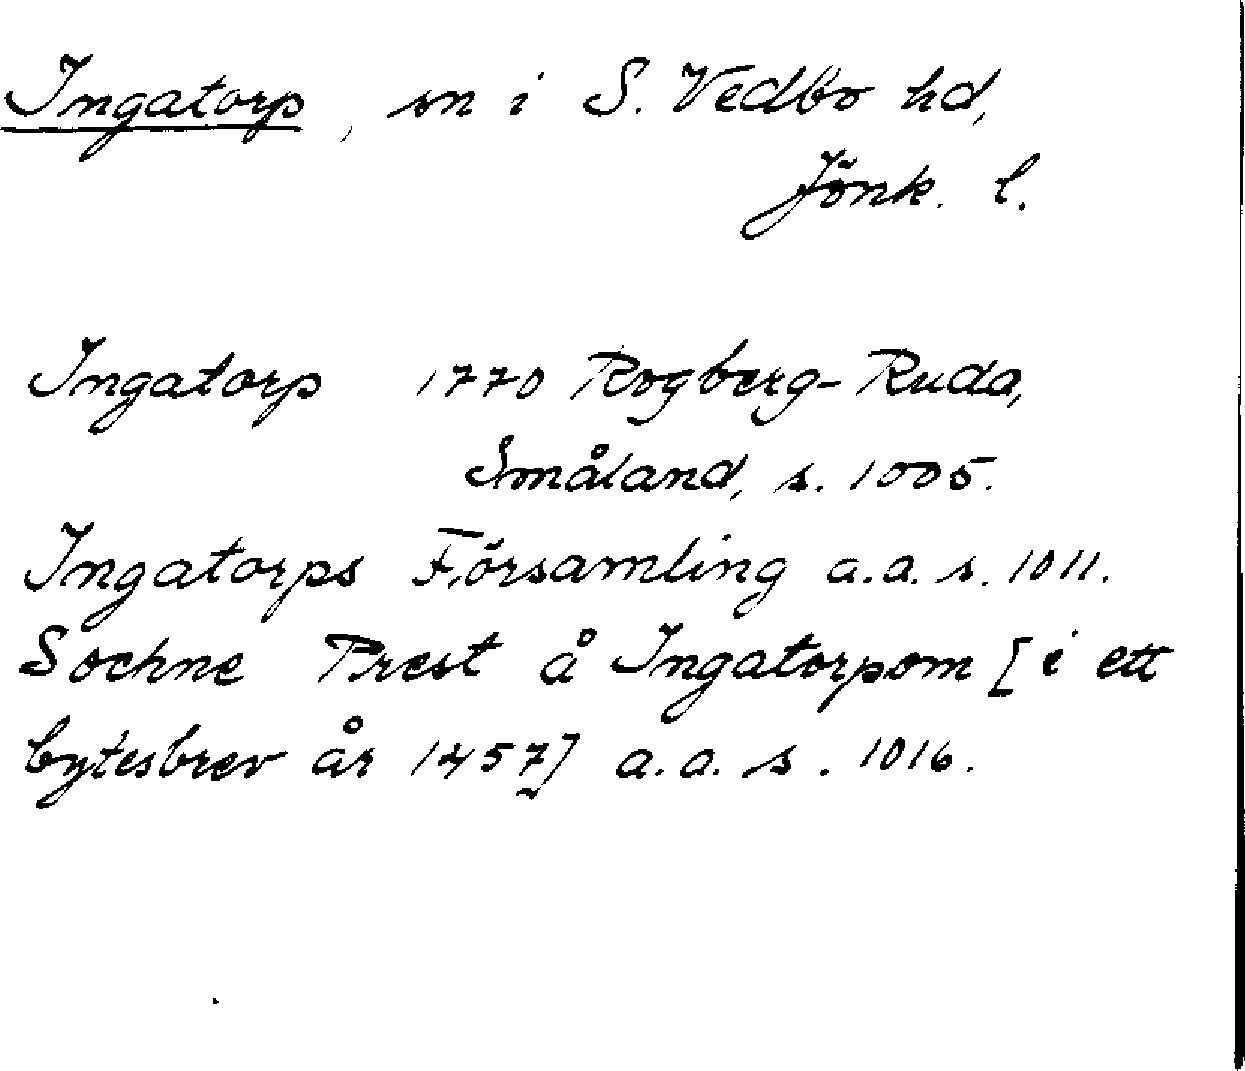 Ingatorp, sn i S. Vedbo hd,
Jönk. l.
Ingatorp 1770 Rogberg-Ruda,
Småland, s. 1005.
Ingatorps Församling a.a. s. 1011.
Sochne Prest å Ingatorpom [i ett
bytesbrev år 1457] a.a. s. 1016.